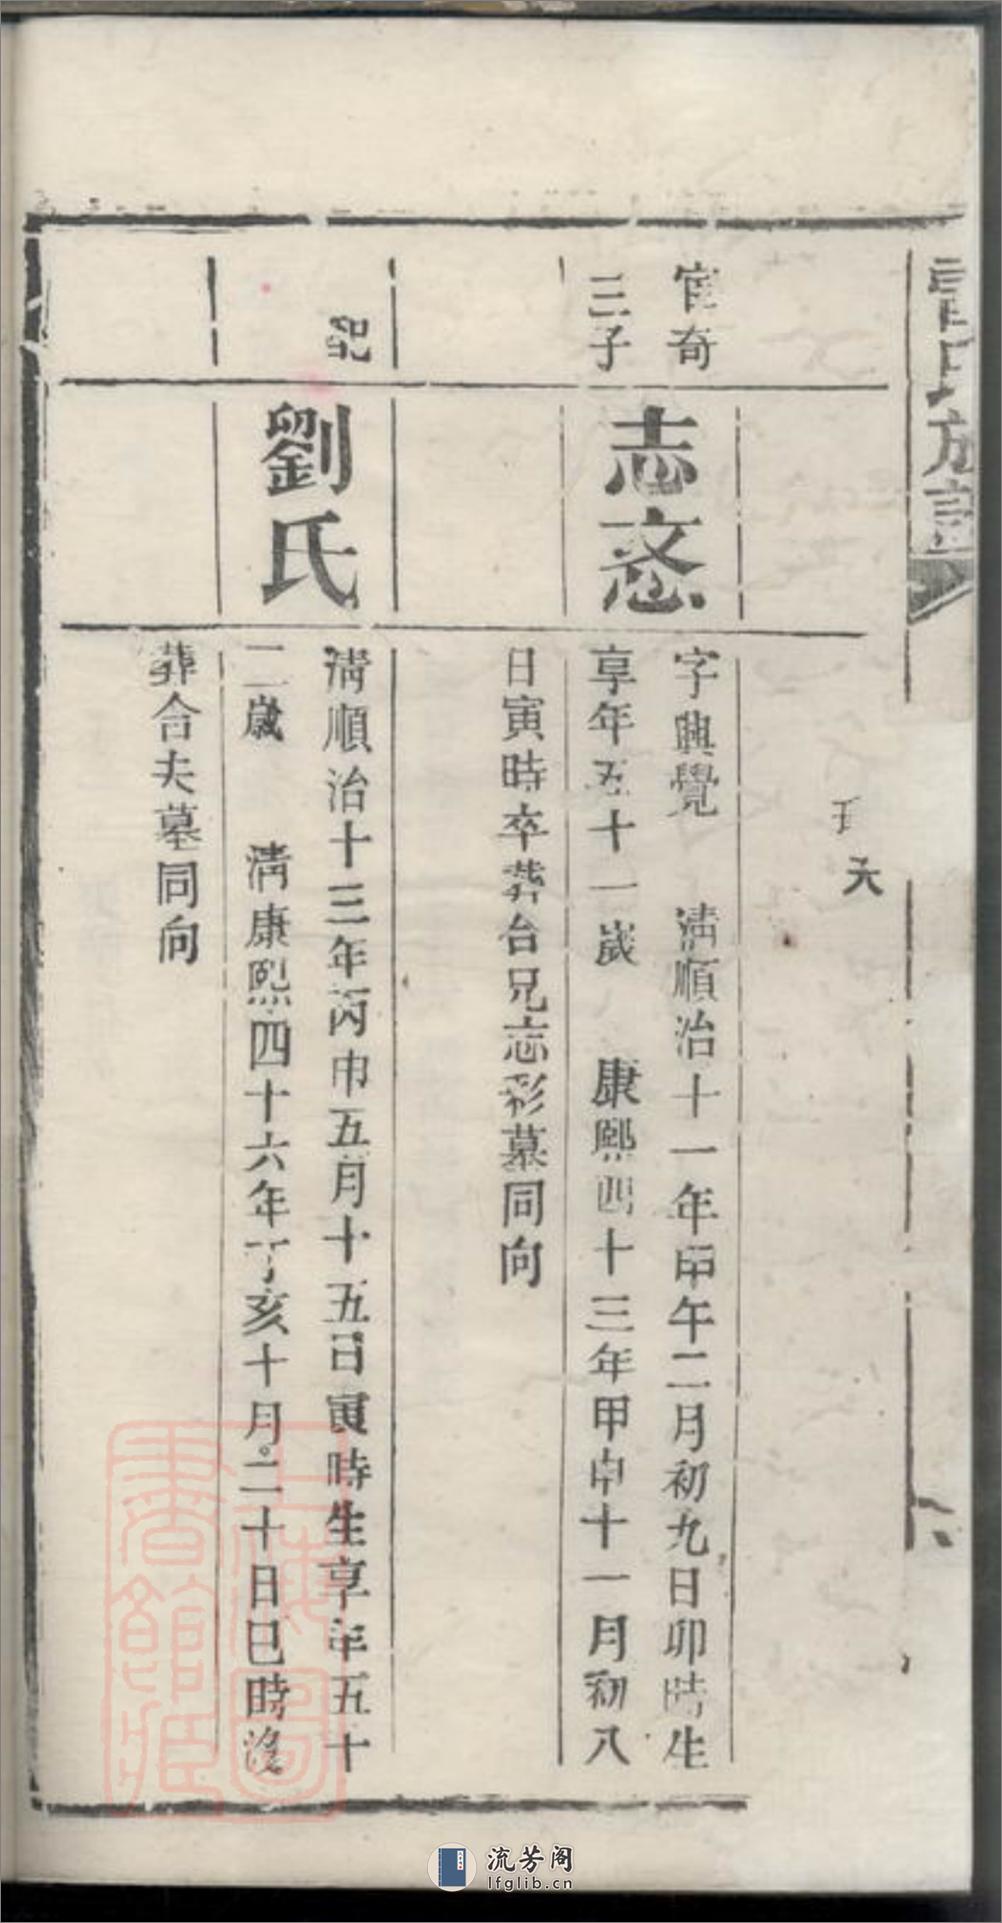 官奇
三子
志忞
字興覺 淸順治十一年甲午二月初九日卯時生
享年五十一歲 康熙四十三年甲申十一月初八
日寅時卒葬台兄志彩墓同向
配
劉氏
淸順治十三年丙申五月十五日寅時生享年五十
二歲 淸康熙四十六年丁亥十月二十日巳時沒
葬合夫墓同向
氏族譜
六
上海圖書館藏
流芳阁
lfglib.cn